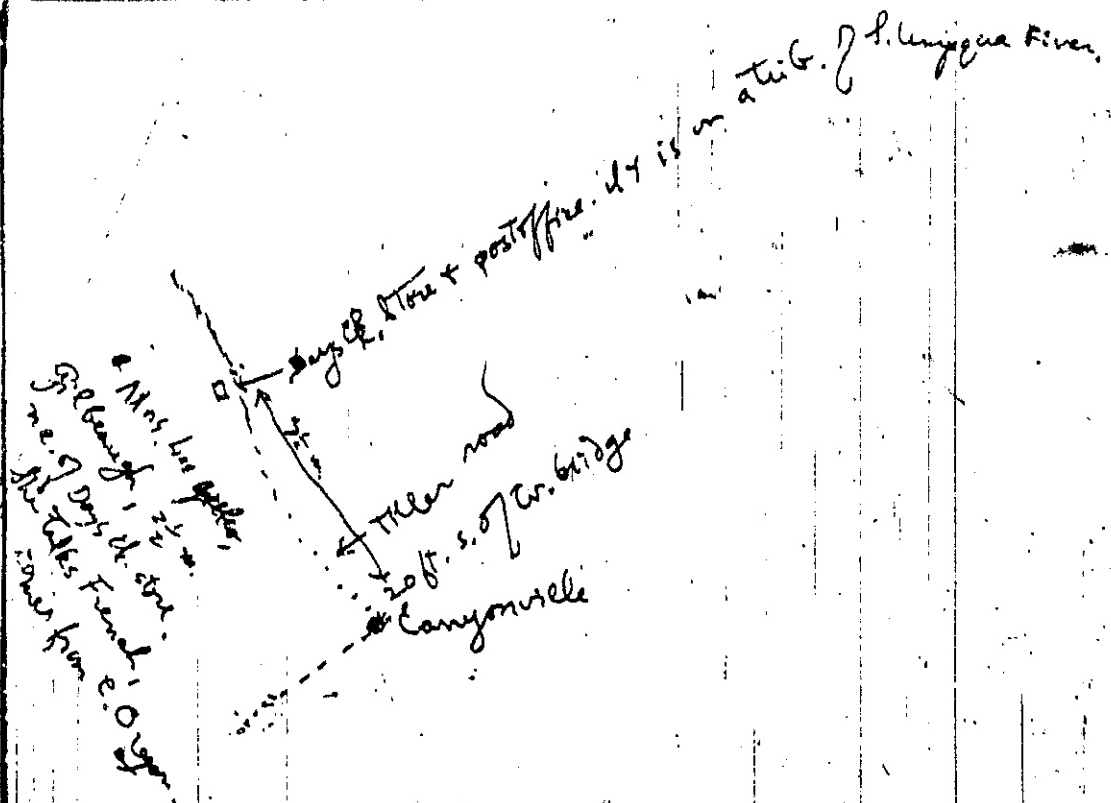 Days Ck. Store + postoffice. it is on a trib. of S. Umpqua River.
Tiller road
20 ft. s. of cr. bridge
Canyonville
Mrs.
2½ m.
n.e. of Days Ck. store.
She talks French,
comes from e. Oregon